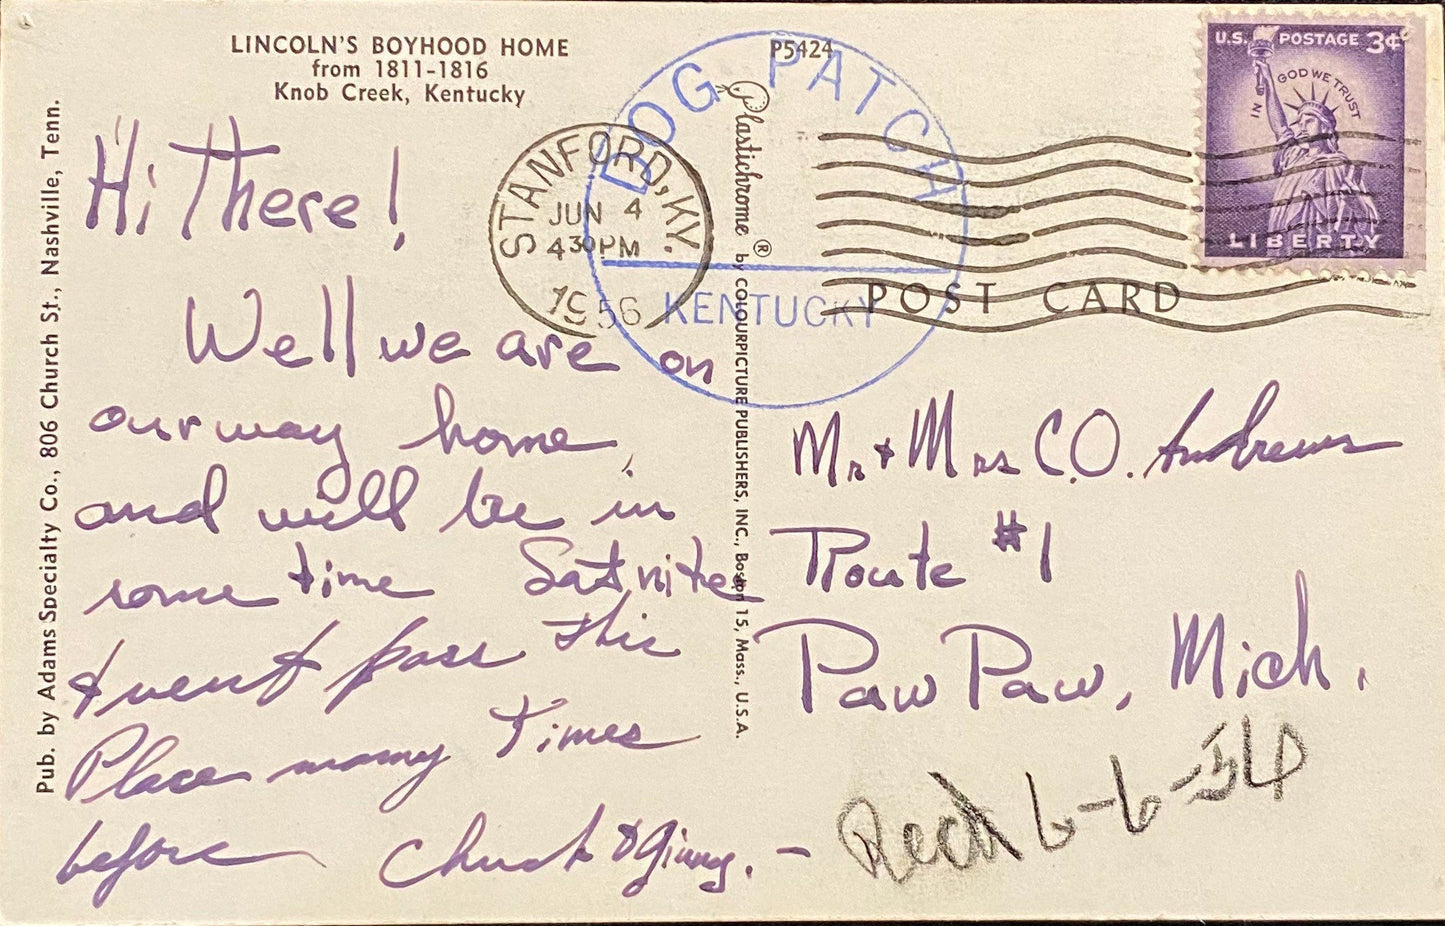 LINCOLN'S BOYHOOD HOME
from 1811-1816
Knob Creek, Kentucky
P5424
Pub. by Adams Specialty Co., 806 Church St., Nashville, Tenn.
Plastichrome ® by COLOURPICTURE PUBLISHERS, INC., Boston 15, Mass., U.S.A.
STANFORD, KY.
JUN 4
4 30 PM
1956
DOG PATCH
KENTUCKY
U.S. POSTAGE 3¢
IN GOD WE TRUST
LIBERTY
POST CARD
Hi There!
Well we are on
our way home,
and will be in
some time Sat nite
& went pass this
Place many Times
before Chuck & Ginny. -
Mr & Mrs C.O. Andrews
Route #1
Paw Paw, Mich.
Recd 6-6-56